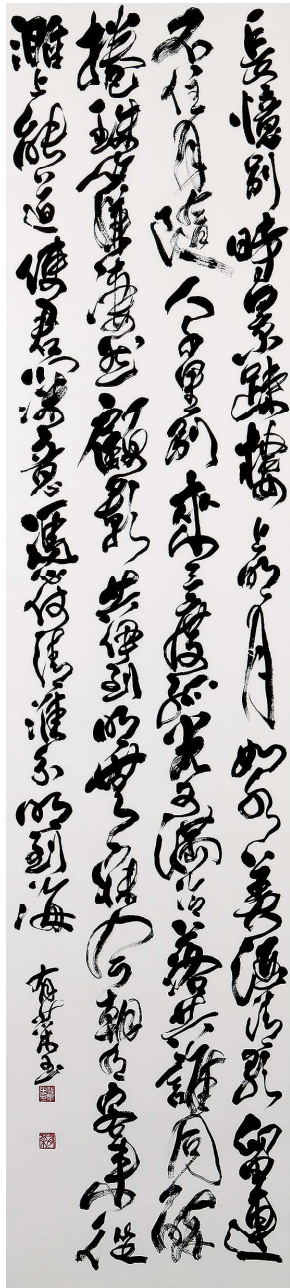 長憶別時景疎樓上明月如水美酒清歌留連
不住月隨人千里別來三度孤光又滿冷落共誰同醉
捲珠簾凄然顧影共伊到明無寐今朝有客來從
濉上能道使君深意憑仗清淮分明到海